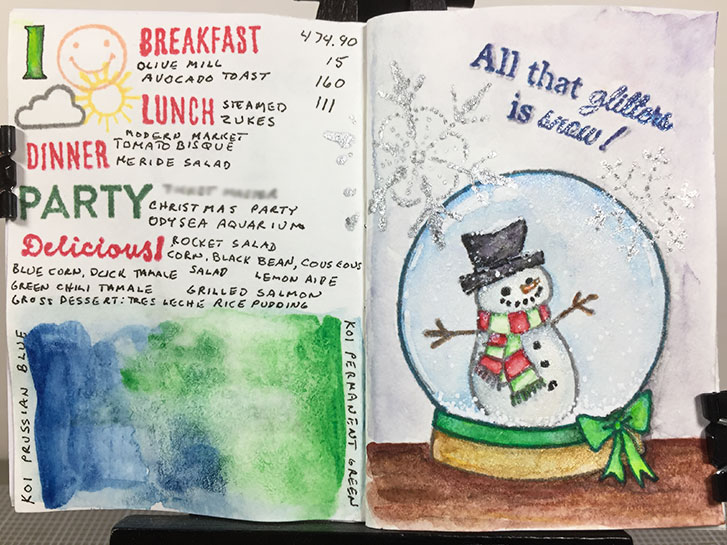 1
BREAKFAST 474.90
OLIVE MILL 15
AVOCADO TOAST 160
LUNCH STEAMED 111
ZUKES
DINNER MODERN MARKET
TOMATO BISQUE
MERIDE SALAD
PARTY
CHRISTMAS PARTY
ODYSEA AQUARIUM
Delicious! ROCKET SALAD
CORN, BLACK BEAN, COUSCOUS
BLUE CORN, DUCK TAMALE SALAD LEMON AIDE
GREEN CHILI TAMALE GRILLED SALMON
GROSS DESSERT: TRES LECHE RICE PUDDING
KOI PRUSSIAN BLUE
KOI PERMANENT GREEN
All that glitters
is snow!